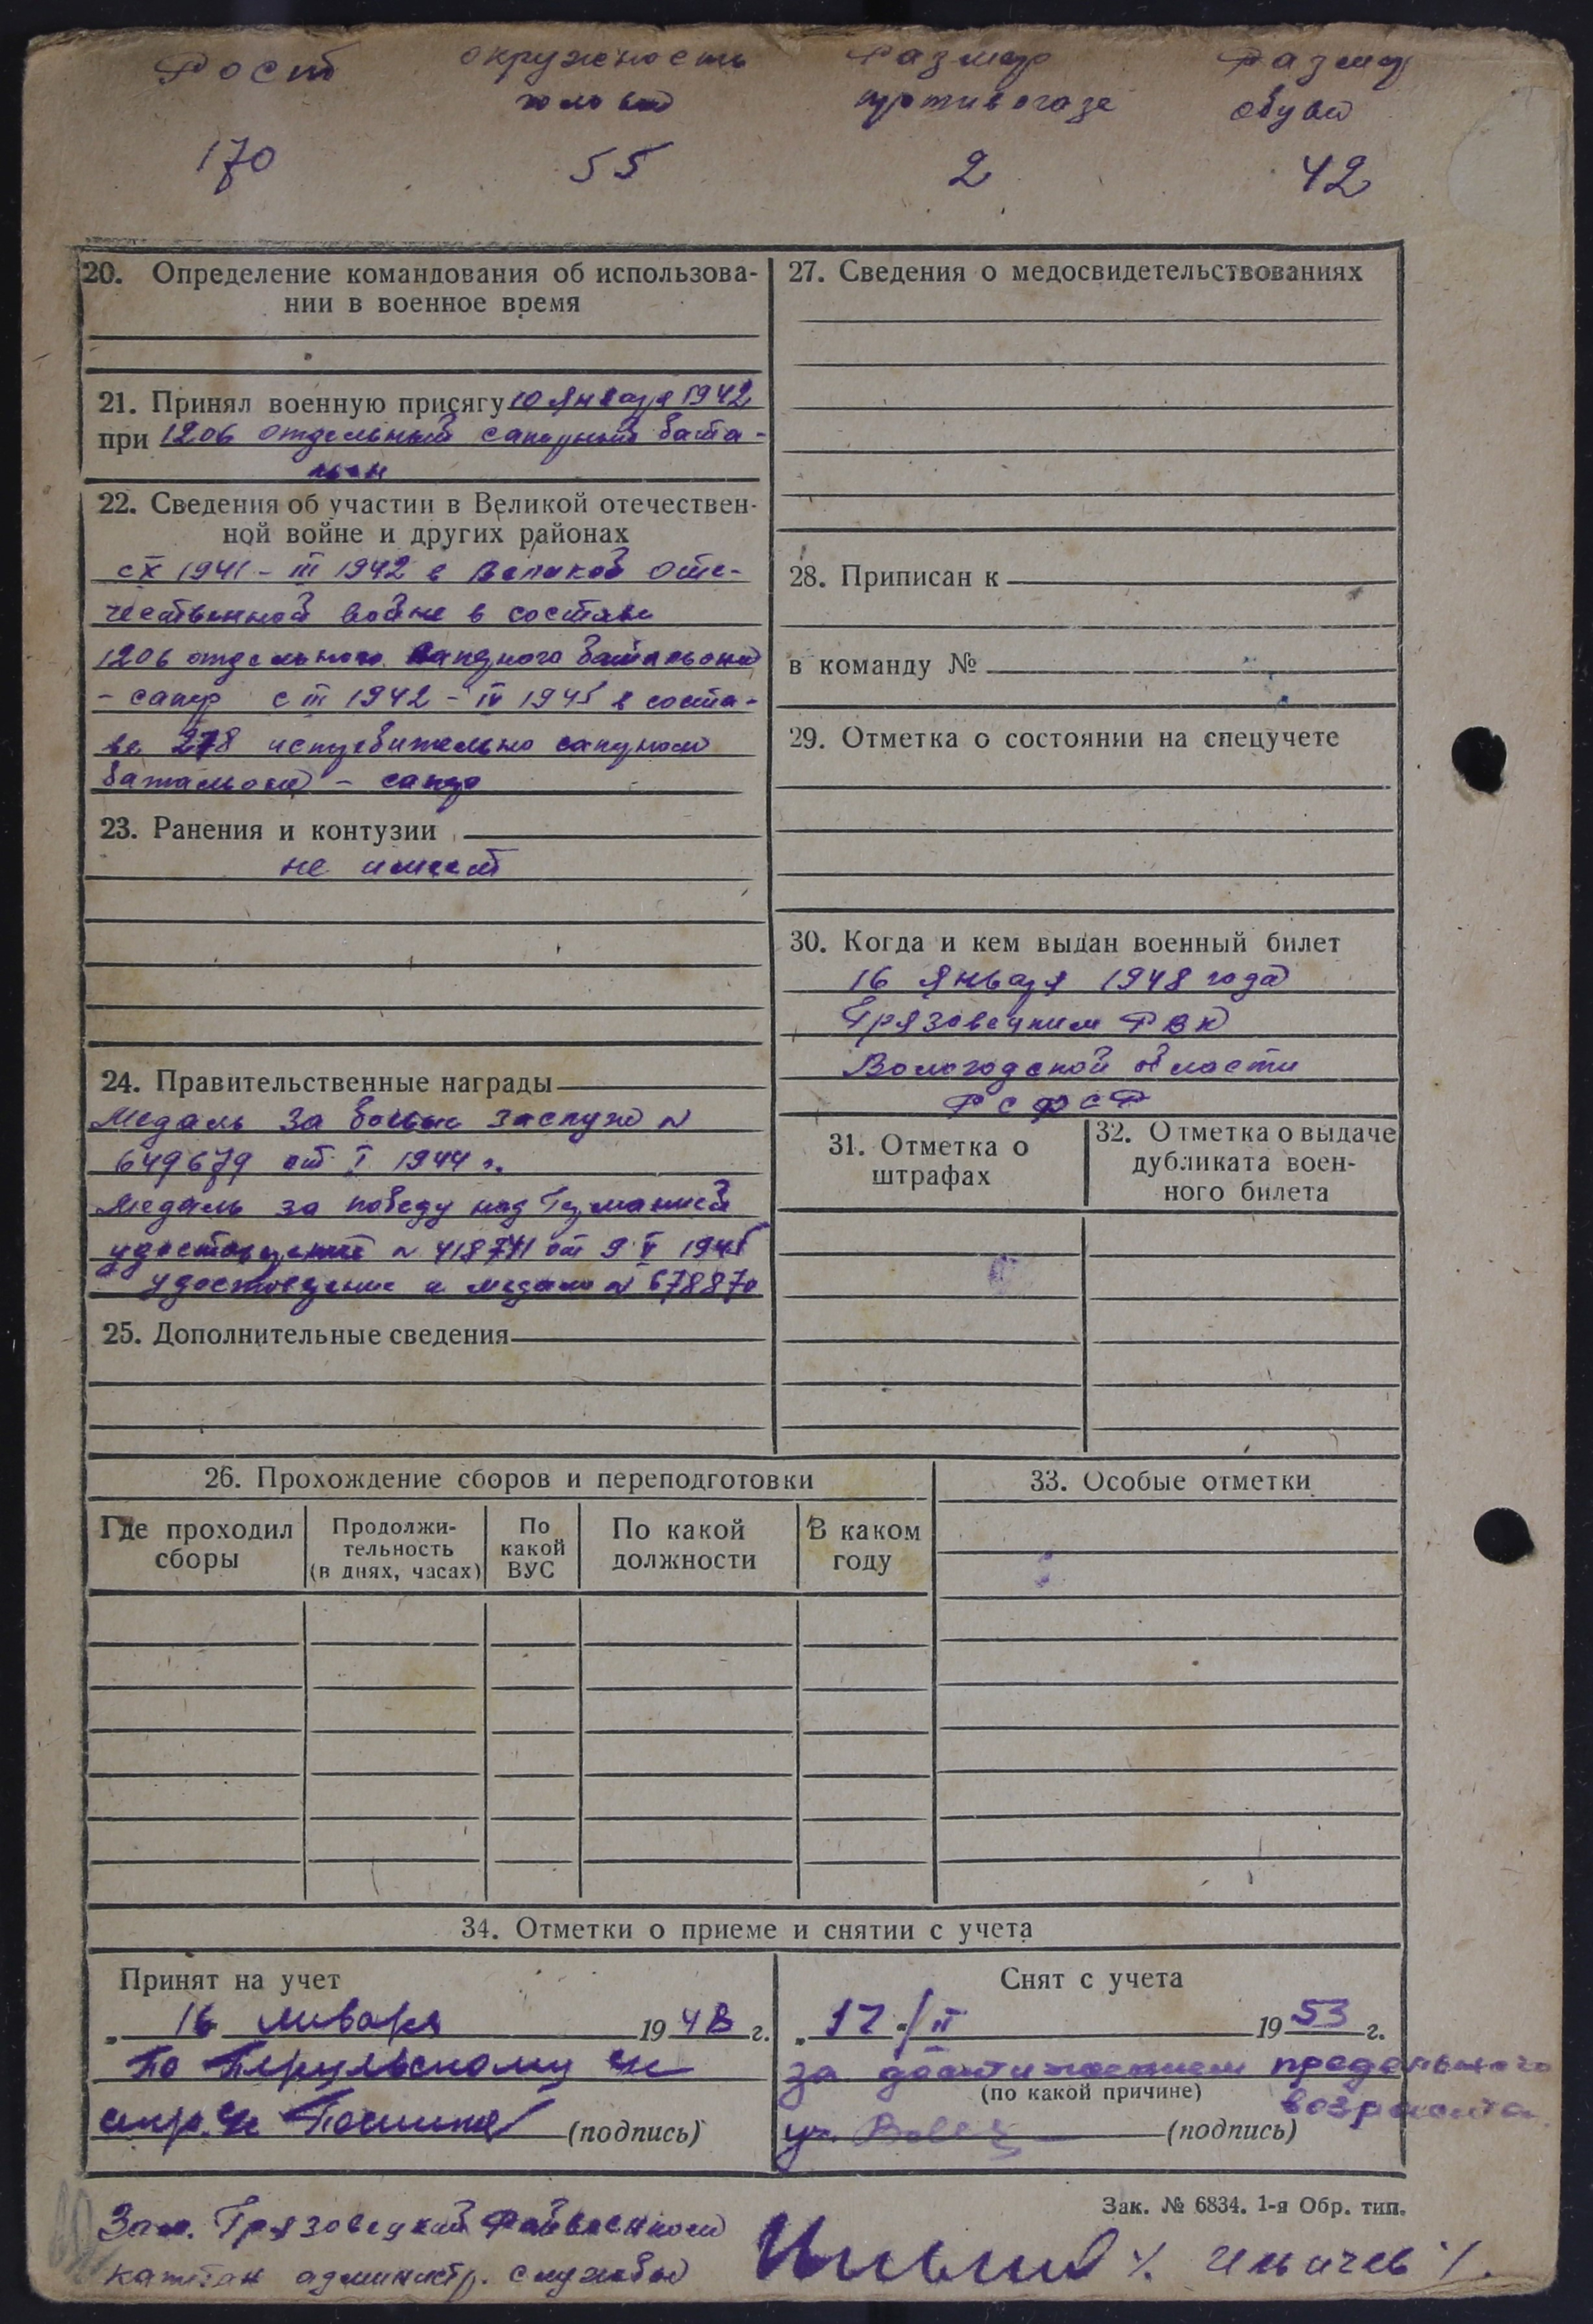 Рост окружность Размер Размер
головы противогаза обуви
170 55 2 42
20. Определение командования об использова-
нии в военное время
21. Принял военную присягу 10 января 1942
при 1206 отдельный саперный баta-
льон
22. Сведения об участии в Великой отечествен-
ной войне и других районах
с X 1941 - III 1942 в Великой Оте-
чественной войне в составе
1206 отдельного саперного батальона
- сапер с III 1942 - IV 1945 в соста-
ве 278 истребительно саперном
батальоне - сапер
23. Ранения и контузии
не имеет
24. Правительственные награды
Медаль за боевые заслуги №
649679 от I 1944 г.
Медаль за победу над Германией
удостоверение № 418741 от 9 V 1945
удостоверение к медали № 678870
25. Дополнительные сведения
27. Сведения о медосвидетельствованиях
28. Приписан к
в команду №
29. Отметка о состоянии на спецучете
30. Когда и кем выдан военный билет
16 января 1948 года
Грязовецким РВК
Вологодской области
РСФСР
31. Отметка о
штрафах
32. Отметка о выдаче
дубликата воен-
ного билета
26. Прохождение сборов и переподготовки
Где проходил
сборы
Продолжи-
тельность
(в днях, часах)
По
какой
ВУС
По какой
должности
В каком
году
33. Особые отметки
34. Отметки о приеме и снятии с учета
Принят на учет
„ 16 января 1948 г.
по
(подпись)
Снят с учета
„ 17 " / II 1953 г.
за достижением предельного
(по какой причине) возраста
(подпись)
Зак. № 6834. 1-я Обр. тип.
Зам. Грязовецкий Райвоенком
капитан администр. службы /. Ильичев /.